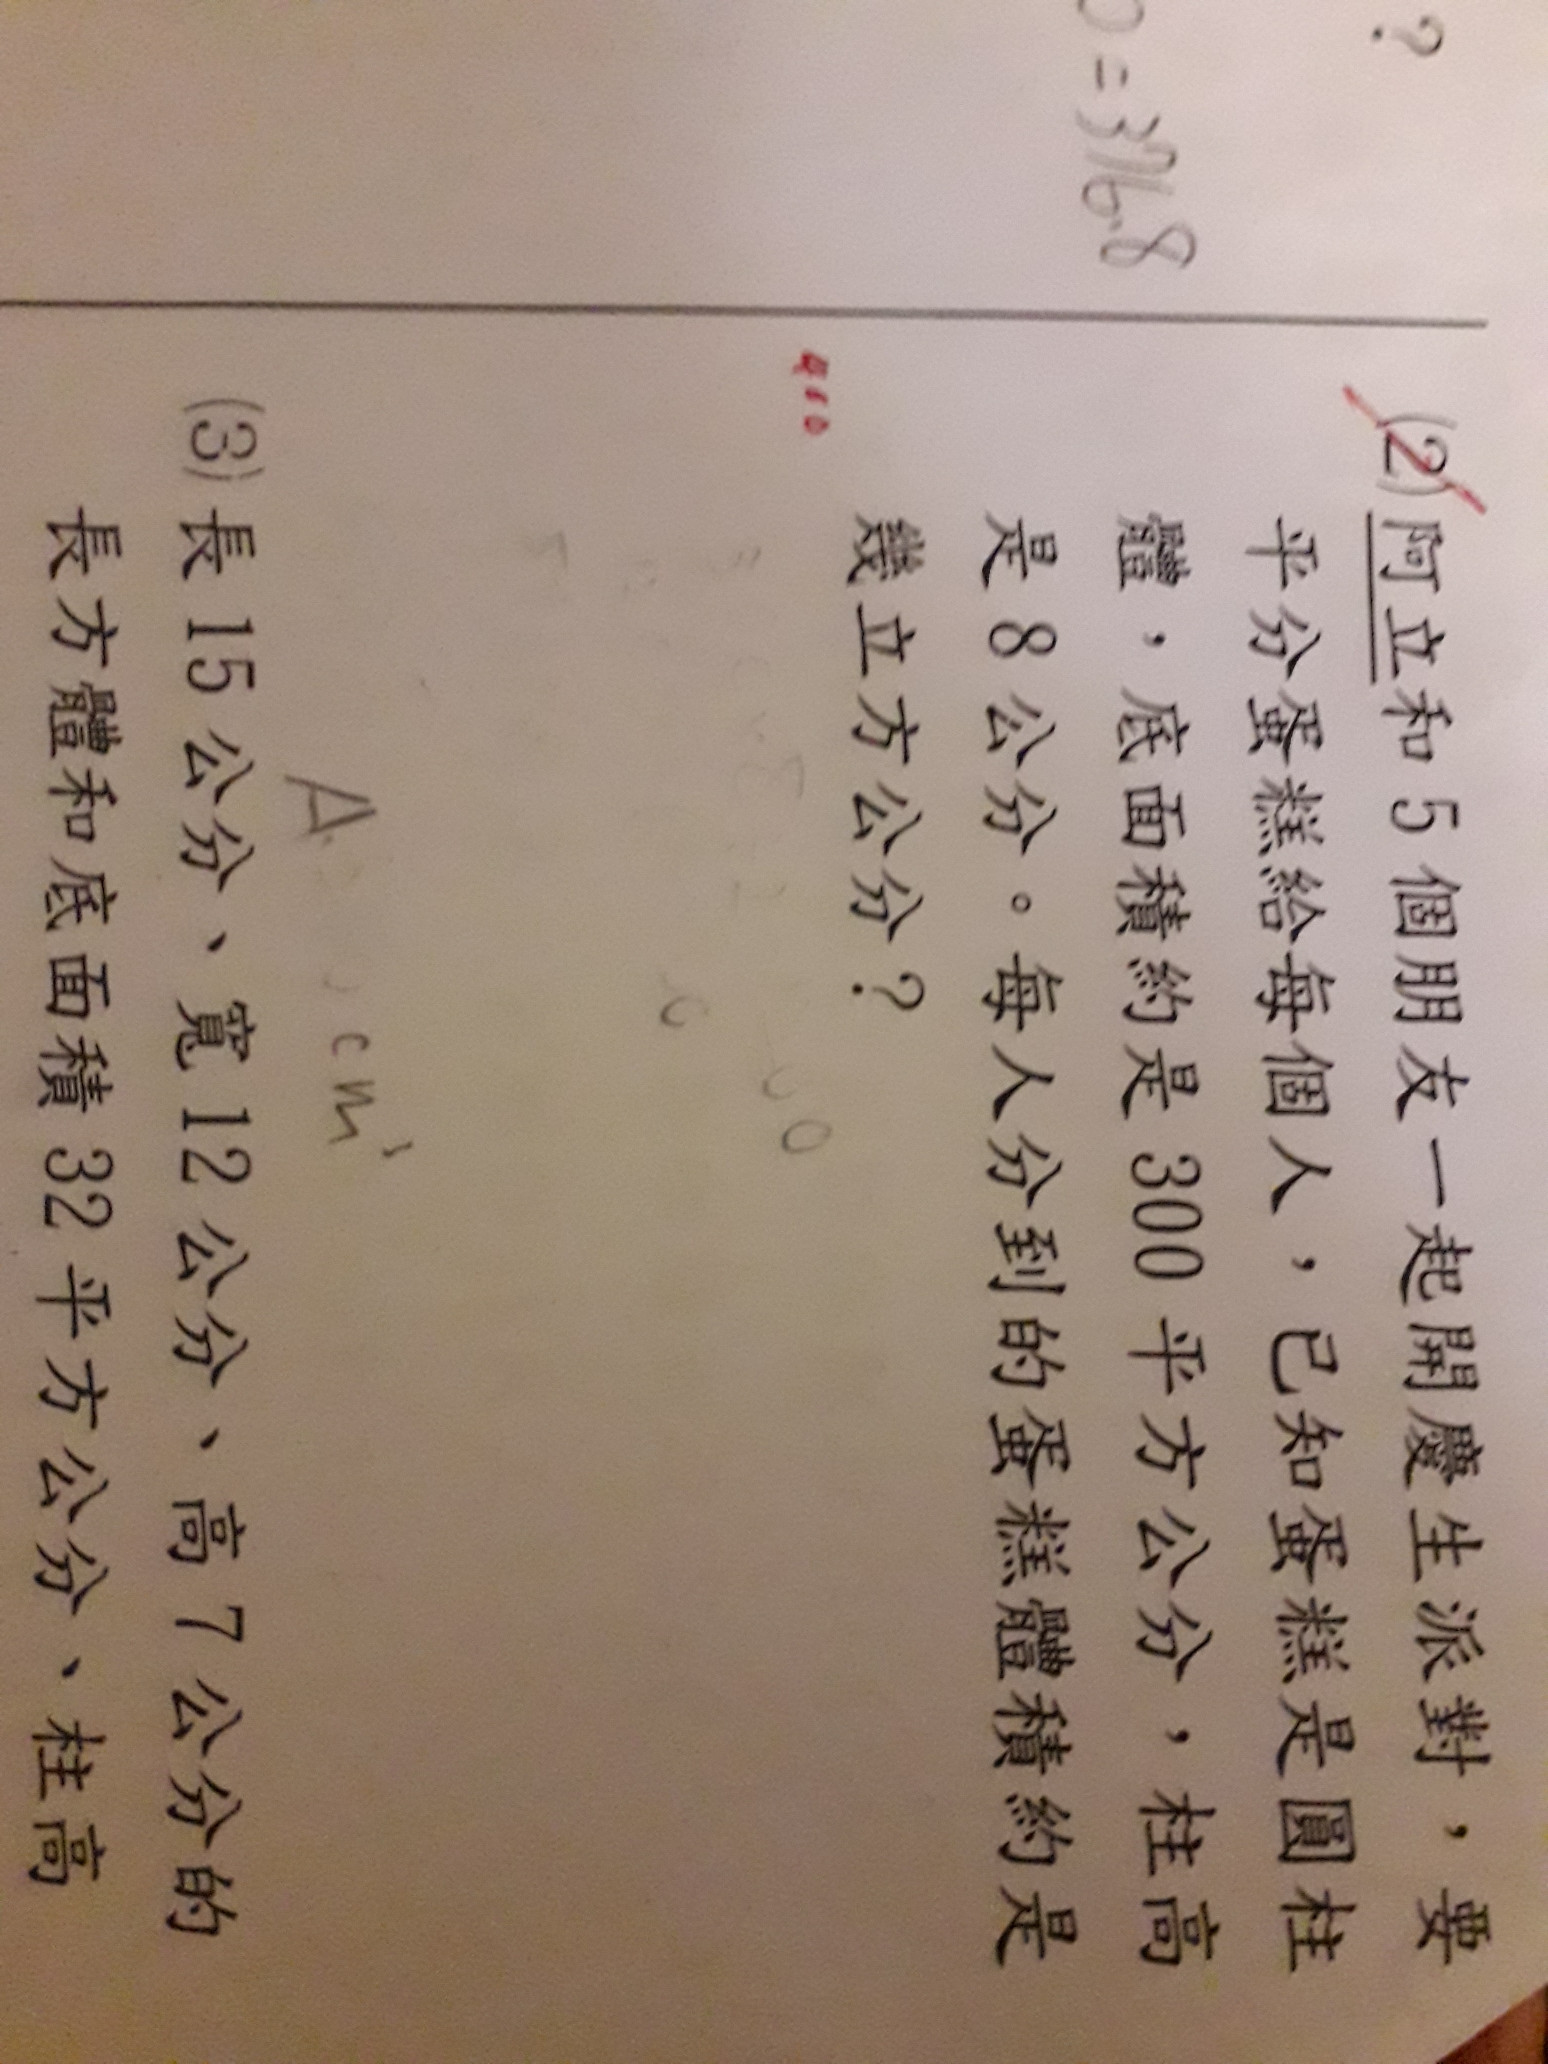 ?
0=376.8
(2)阿立和5個朋友一起開慶生派對,要
平分蛋糕給每個人,已知蛋糕是圓柱
體,底面積約是300平方公分,柱高
是8公分。每人分到的蛋糕體積約是
幾立方公分?
A
cm³
(3)長15公分、寬12公分、高7公分的
長方體和底面積32平方公分、柱高